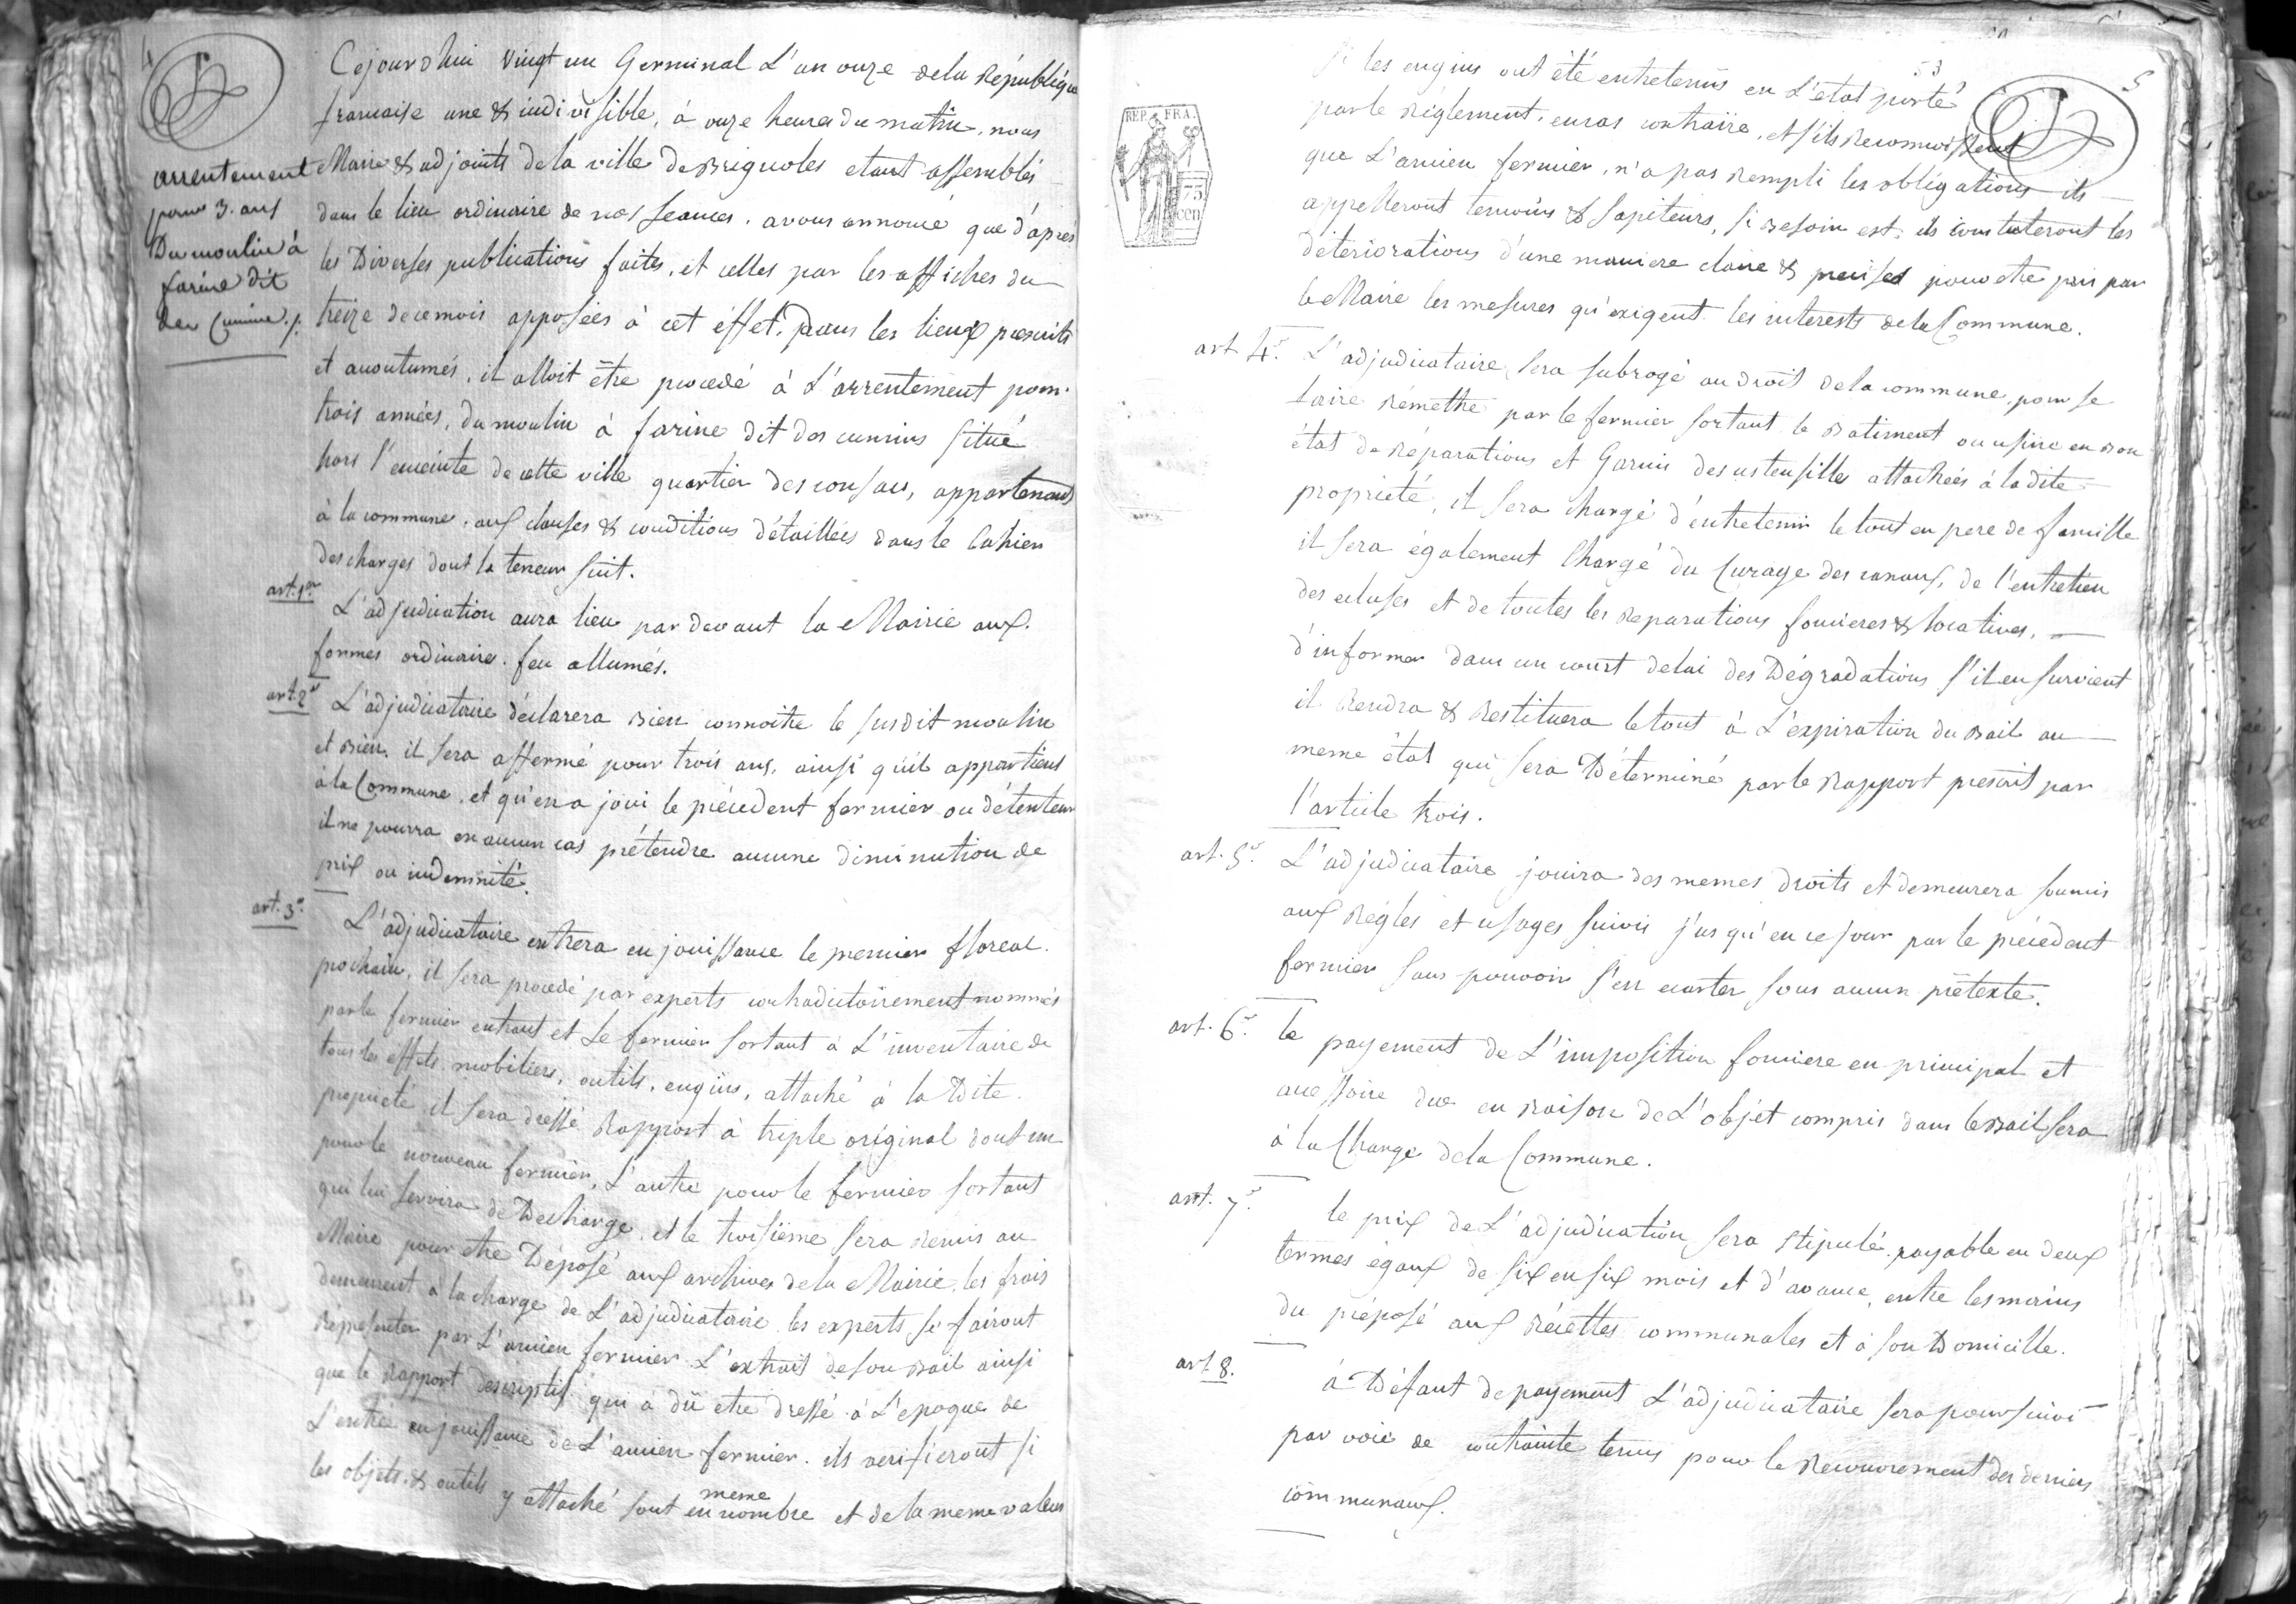 4
Cejourd'hui vingt un Germinal L'an onze dela République
francaise une & indivisible, à onze heures du matin, nous
Maire & adjoints de la ville de Brignoles etant assemblés
dans le lieu ordinaire de nos seances. avons annoncé que d'après
les Diverses publications faites, et celles par les affiches du
treize de ce mois apposées à cet éffet. Dans les lieux prescrits
et accoutumés, il alloit être procedé à L'arrentement pour
trois années, du moulin à farine dit des cumins situé
hors l'enceinte de cette ville quartier des consacs, appartenant
à la commune. aux clauses & conditions détaillées dans le Cahier
des charges dont la teneur suit.
arrentement
pour 3. ans
Du moulin à
farine dit
des
art. 1er
L'adjudication aura lieu par devant la Mairie aux
formes ordinaires. feu allumés.
art. 2e
L'adjudicataire déclarera bien connoitre le susdit moulin
et bien. il sera affermé pour trois ans, ainsi qu'il appartient
à la Commune, et qu'en a joui le précedent fermier ou détenteur
il ne pourra en aucun cas prétendre aucune diminution de
prix ou indemnité.
art. 3e
L'adjudicataire entrera en jouissance le premier floreal
prochain, il sera procedé par experts contradictoirement nommés
par le fermier entrant et Le fermier sortant à L'inventaire de
tous les effets mobiliers, outils, engins, attaché à la Dite
proprieté il sera dressé Rapport à triple original dont un
pour le nouveau fermier, L'autre pour le fermier sortant
qui lui servira de Decharge, et le troisième sera Remis au
Maire pour etre Déposé aux archives dela Mairie, les frais
demeurent à la charge de L'adjudicataire les experts se fairont
Représenter par L'ancien fermier L'extrait de son Bail ainsi
que le Rapport descriptif qui a dû etre dressé à L'epoque de
L'entrée en jouissance de L'ancien fermier. ils verifieront si
les objets & outils y attaché sont en meme nombre et de la meme valeur
5
53
REP. FRA.
75
cen
si les engins ont été entretenus en L'état porté
par le Réglement, en cas contraire, et s'ils Reconnoissent
que L'ancien fermier, n'a pas Rempli les obligations ils
appelleront temoins & sapiteurs, si Besoin est, ils constateront les
déteriorations d'une maniere claire & precise pour etre pris par
le Maire les mesures qu'exigent les interests dela Commune.
art. 4e.
L'adjudicataire sera subrogé au droit dela commune, pour se
faire Rémettre par le fermier sortant le Batiment ou usine en Bon
état de Réparations et Garnis des ustensilles attachées à la dite
proprieté, il sera chargé d'entretenir le tout en pere de famille
il sera également Chargé du Curage des canaux, de l'entretien
des ecluses et de toutes les Reparations foncieres & locatives,
d'informer dans un court delai des Dégradations s'il en survient
il Rendra & Restituera le tout à L'expiration du Bail au
meme état qui sera Déterminé par le Rapport prescrit par
l'article trois.
art. 5e.
L'adjudicataire jouira des memes droits et demeurera soumis
aux Régles et usages suivis jusqu'en ce jour par le précedent
fermier sans pouvoir s'en ecarter sous aucun prétexte.
art. 6e.
le payement de L'imposition fonciere en principal et
accessoire due en Raison de L'objet compris dans le Bail sera
à la Charge dela Commune.
art. 7e.
le prix de L'adjudication sera stipulé payable en deux
termes égaux de six en six mois et d'avance, entre les mains
du préposé aux Récettes communales et à son Domicille.
art. 8.
à Défaut de payement L'adjudicataire sera poursuivi
par voie de contrainte tenus pour le Recouvrement des deniers
communaux.